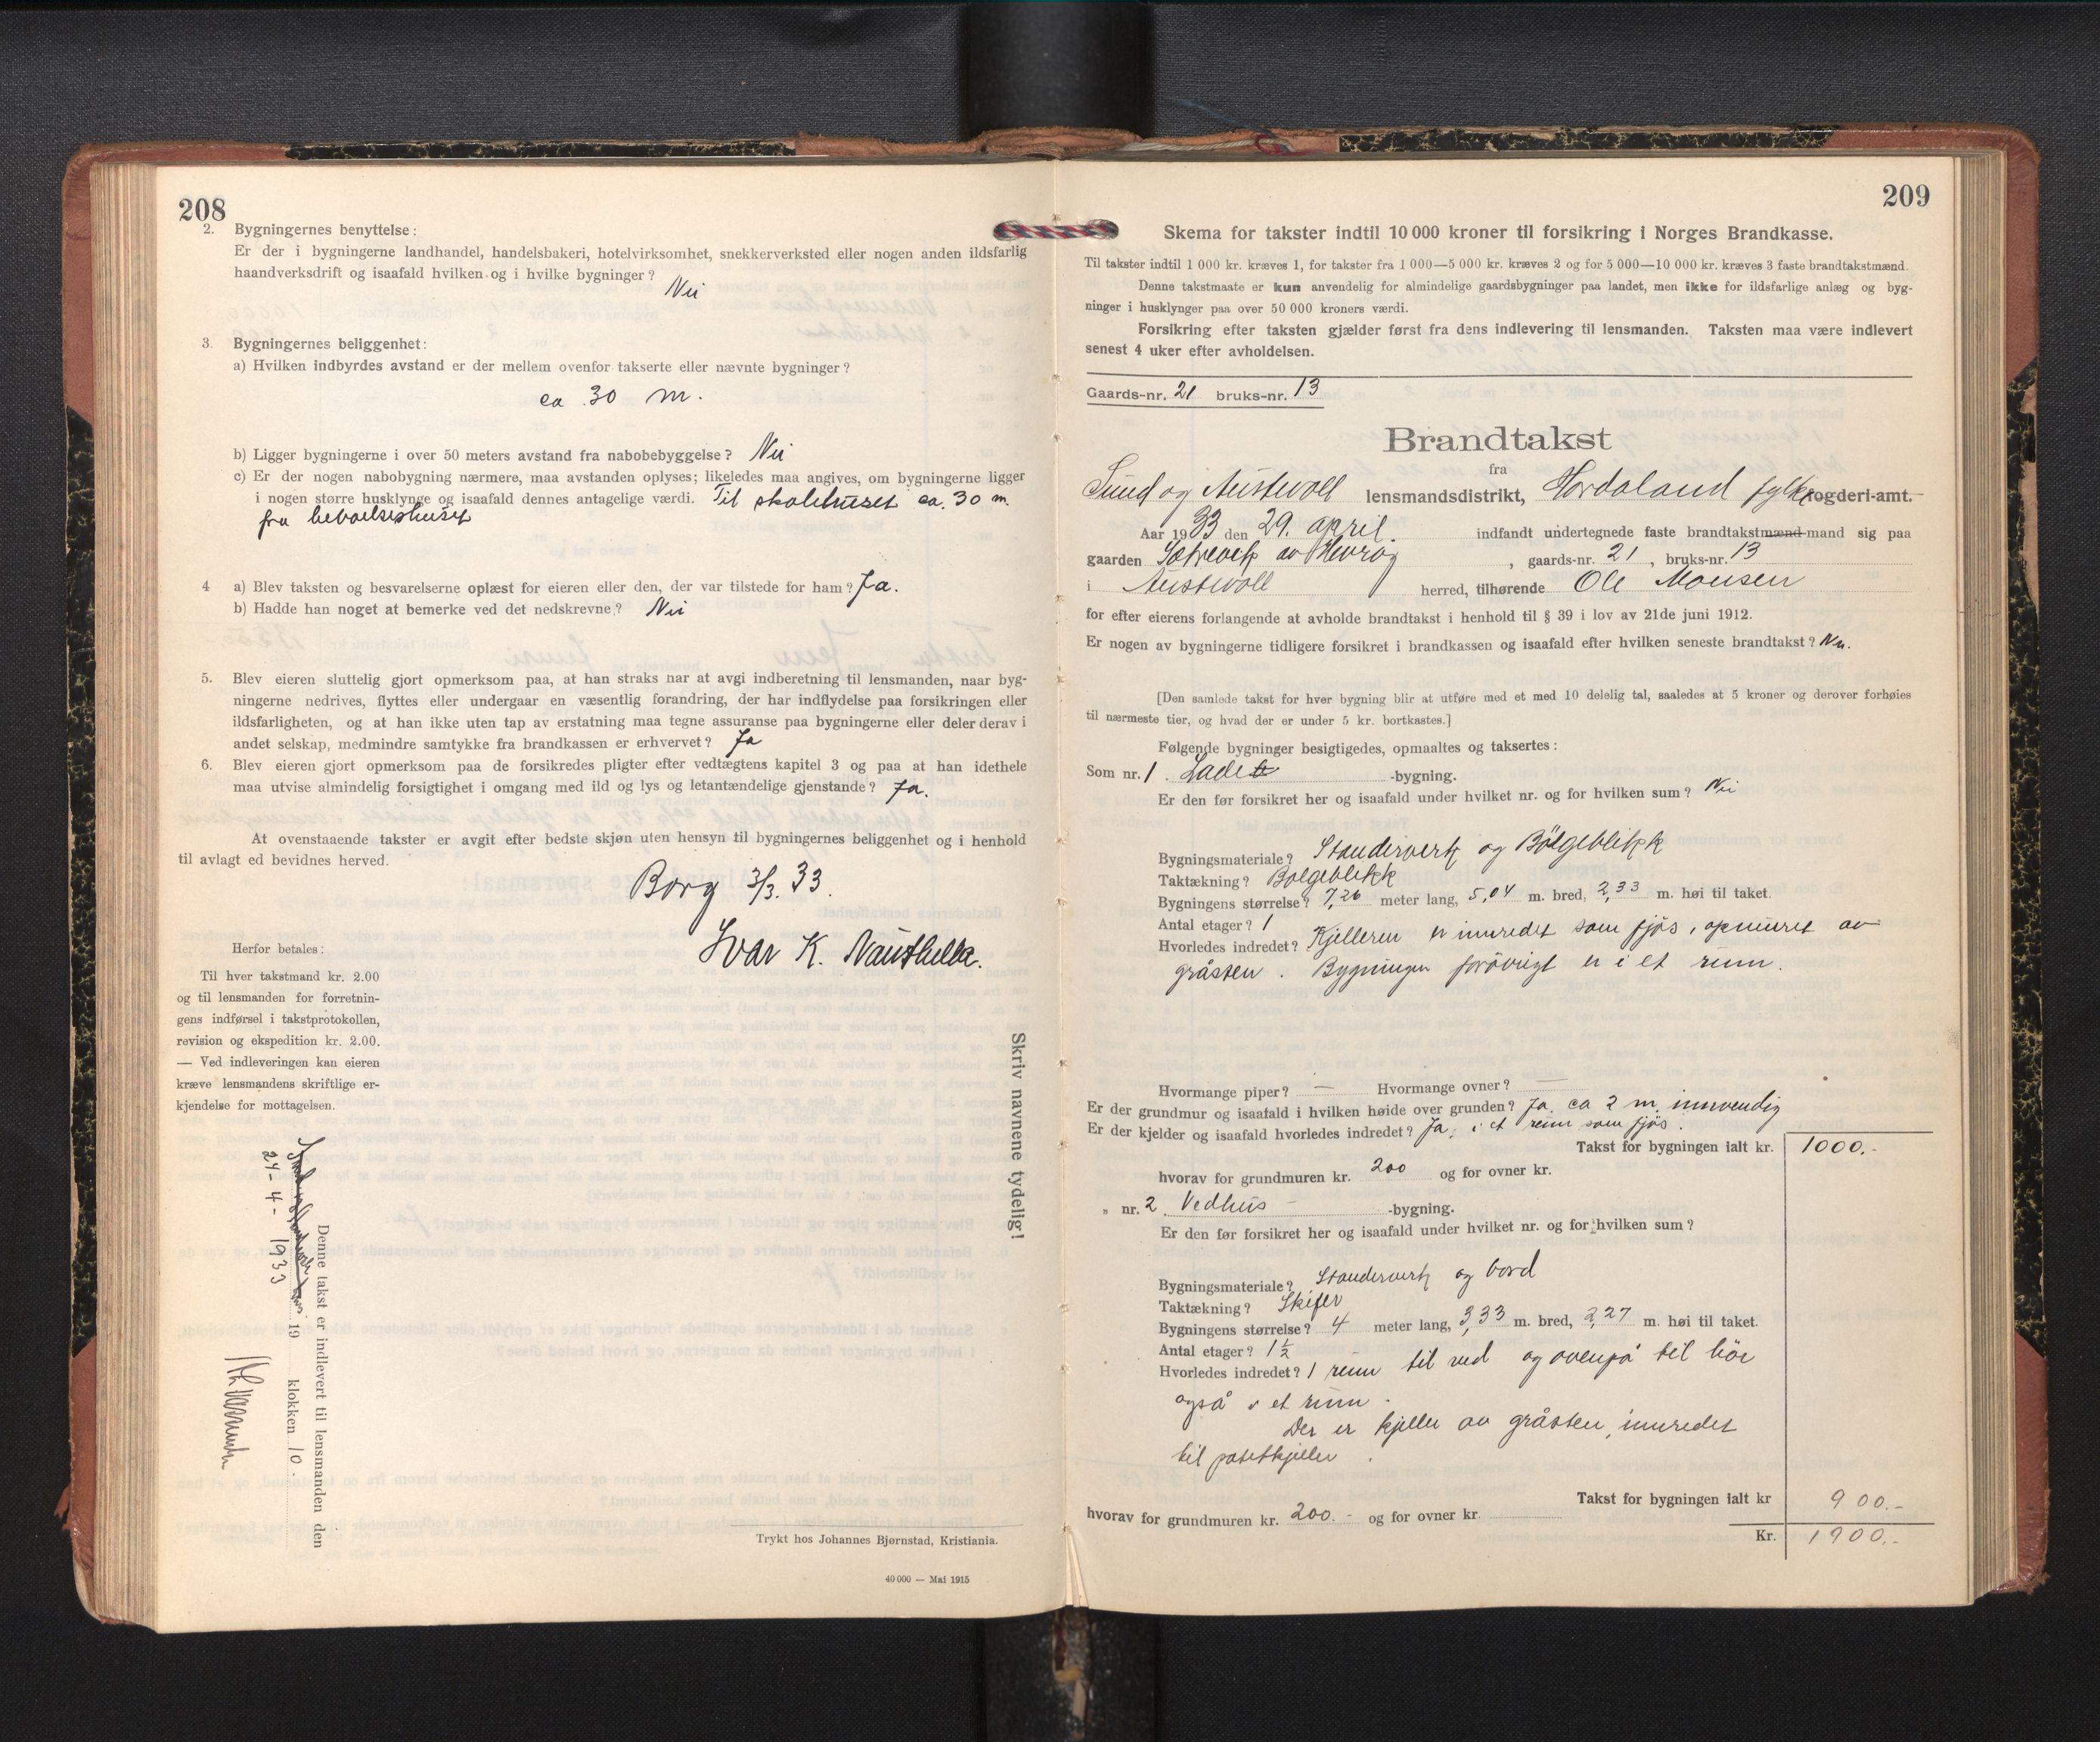 208
2. Bygningernes benyttelse:
Er der i bygningerne landhandel, handelsbakeri, hotelvirksomhet, snekkerverksted eller nogen anden ildsfarlig
haandverksdrift og isaafald hvilken og i hvilke bygninger?
Nei
3. Bygningernes beliggenhet:
a) Hvilken indbyrdes avstand er der mellem ovenfor takserte eller nævnte bygninger?
ca 30 m.
b) Ligger bygningerne i over 50 meters avstand fra nabobebyggelse? Nei
c) Er der nogen nabobygning nærmere, maa avstanden oplyses; likeledes maa angives, om bygningerne ligger
i nogen større husklynge og isaafald dennes antagelige værdi. Til skolehuset ca. 30 m
fra
4 a) Blev taksten og besvarelserne oplæst for eieren eller den, der var tilstede for ham? Ja.
b) Hadde han noget at bemerke ved det nedskrevne? Nei
5. Blev eieren sluttelig gjort opmerksom paa, at han straks har at avgi indberetning til lensmanden, naar byg-
ningerne nedrives, flyttes eller undergaar en væsentlig forandring, der har indflydelse paa forsikringen eller
ildsfarligheten, og at han ikke uten tap av erstatning maa tegne assuranse paa bygningerne eller deler derav i
andet selskap, medmindre samtykke fra brandkassen er erhvervet? Ja
6. Blev eieren gjort opmerksom paa de forsikredes pligter efter vedtægtens kapitel 3 og paa at han idethele
maa utvise almindelig forsigtighet i omgang med ild og lys og letantændelige gjenstande? Ja.
At ovenstaaende takster er avgit efter bedste skjøn uten hensyn til bygningernes beliggenhet og i henhold
til avlagt ed bevidnes herved.
Borg 3/3. 33.
Ivar K. Nausthella.
Herfor betales:
Til hver takstmand kr. 2.00
og til lensmanden for forretnin-
gens indførsel i takstprotokollen,
revision og ekspedition kr. 2.00.
— Ved indleveringen kan eieren
kræve lensmandens skriftlige er-
kjendelse for mottagelsen.
Skriv navnene tydelig!
Denne takst er indlevert til lensmanden den
19 klokken 10.
24-4-1933
Trykt hos Johannes Bjørnstad, Kristiania.
40 000 — Mai 1915
209
Skema for takster indtil 10 000 kroner til forsikring i Norges Brandkasse.
Til takster indtil 1 000 kr. kræves 1, for takster fra 1 000—5 000 kr. kræves 2 og for 5 000—10 000 kr. kræves 3 faste brandtakstmænd.
Denne takstmaate er kun anvendelig for almindelige gaardsbygninger paa landet, men ikke for ildsfarlige anlæg og byg-
ninger i husklynger paa over 50 000 kroners værdi.
Forsikring efter taksten gjælder først fra dens indlevering til lensmanden. Taksten maa være indlevert
senest 4 uker efter avholdelsen.
Gaards-nr. 21 bruks-nr. 13
Brandtakst
fra
Sund og Austevoll lensmandsdistrikt, Hordaland fylke fogderi-amt.
Aar 1933 den 29. april. indfandt undertegnede faste brandtakstmænd-mand sig paa
gaarden av , gaards-nr. 21, bruks-nr. 13
i Austevoll herred, tilhørende Ole Monsen
for efter eierens forlangende at avholde brandtakst i henhold til § 39 i lov av 21de juni 1912.
Er nogen av bygningerne tidligere forsikret i brandkassen og isaafald efter hvilken seneste brandtakst? Nei.
[Den samlede takst for hver bygning blir at utføre med et med 10 delelig tal, saaledes at 5 kroner og derover forhøies
til nærmeste tier, og hvad der er under 5 kr. bortkastes.]
Følgende bygninger besigtigedes, opmaaltes og taksertes:
Som nr. 1. Lade -bygning.
Er den før forsikret her og isaafald under hvilket nr. og for hvilken sum? Nei
Bygningsmateriale? Standerverk og Bölgeblikk
Taktækning? Bolgeblikk
Bygningens størrelse? 7,26 meter lang, 5,04 m. bred, 2,33 m. høi til taket.
Antal etager? 1
Hvorledes indredet? Kjelleren er innredet som fjös, opmuret av
gråsten. Bygningen forövrigt er i et rum.
Hvormange piper? — Hvormange ovner? —
Er der grundmur og isaafald i hvilken høide over grunden? Ja. ca 2 m. innvendig
Er der kjelder og isaafald hvorledes indredet? Ja, i et rum som fjös.
Takst for bygningen ialt kr. 1000.-
hvorav for grundmuren kr. 200 og for ovner kr.
„ nr. 2. Vedhus -bygning.
Er den før forsikret her og isaafald under hvilket nr. og for hvilken sum?
Bygningsmateriale? Standerverk og bord
Taktækning? Skifer
Bygningens størrelse? 4 meter lang, 3,33 m. bred, 2,27 m. høi til taket.
Antal etager? 1½
Hvorledes indredet? 1 rum til ved og ovenpå til höi
også i et rum.
Der er kjeller av gråsten, innredet
til potetkjeller.
Takst for bygningen ialt kr 900.-
hvorav for grundmuren kr. 200.- og for ovner kr.
Kr. 1900.-